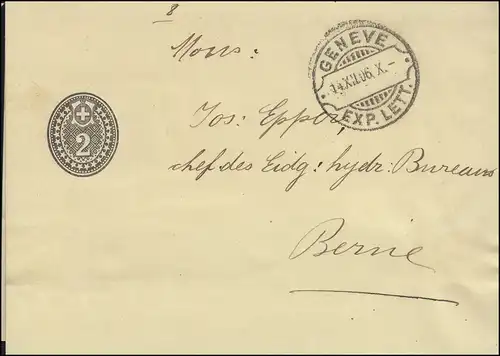 8
Mons:
GENEVE
14.XII.06. X. -
EXP. LETT.
Jos: Epper,
2
chef des Eidg: hydr: Bureaus
Berne